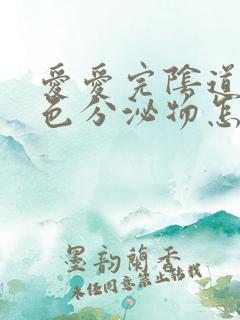 愛愛完陰道
色分泌物怎
墨韵蘭香
未经同意禁止转载